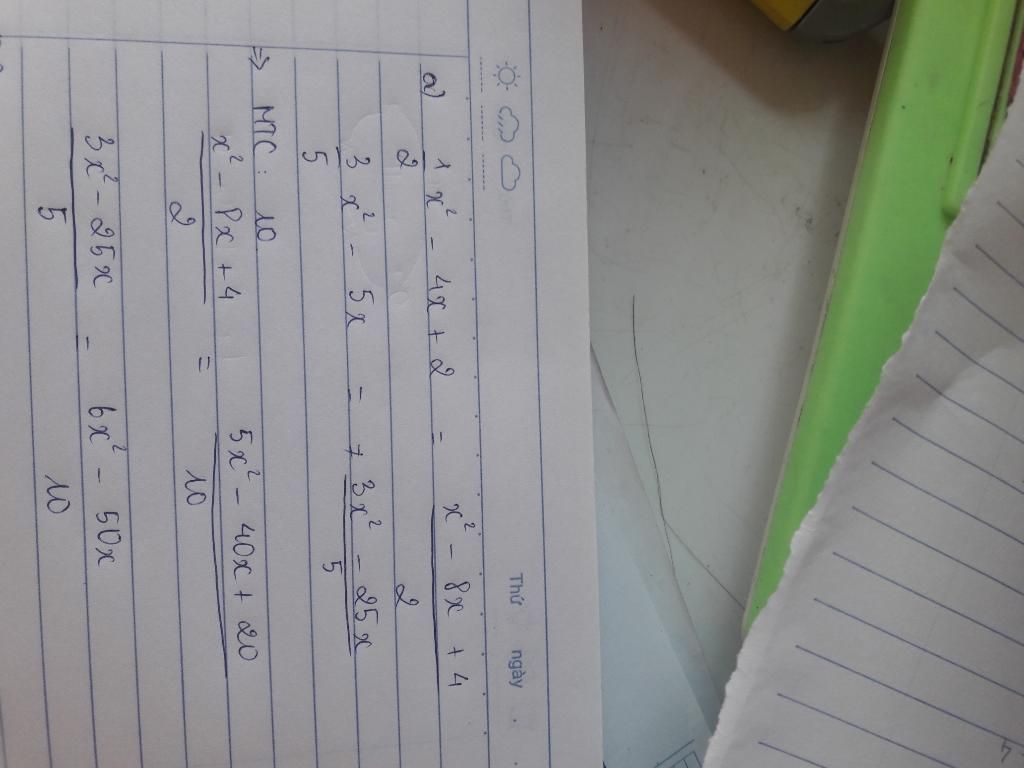 Thứ ngày
a) 1/2 x² - 4x + 2 = (x² - 8x + 4)/2
3/5 x² - 5x = + (3x² - 25x)/5
=> MTC: 10
(x² - 8x + 4)/2 = (5x² - 40x + 20)/10
(3x² - 25x)/5 = (6x² - 50x)/10